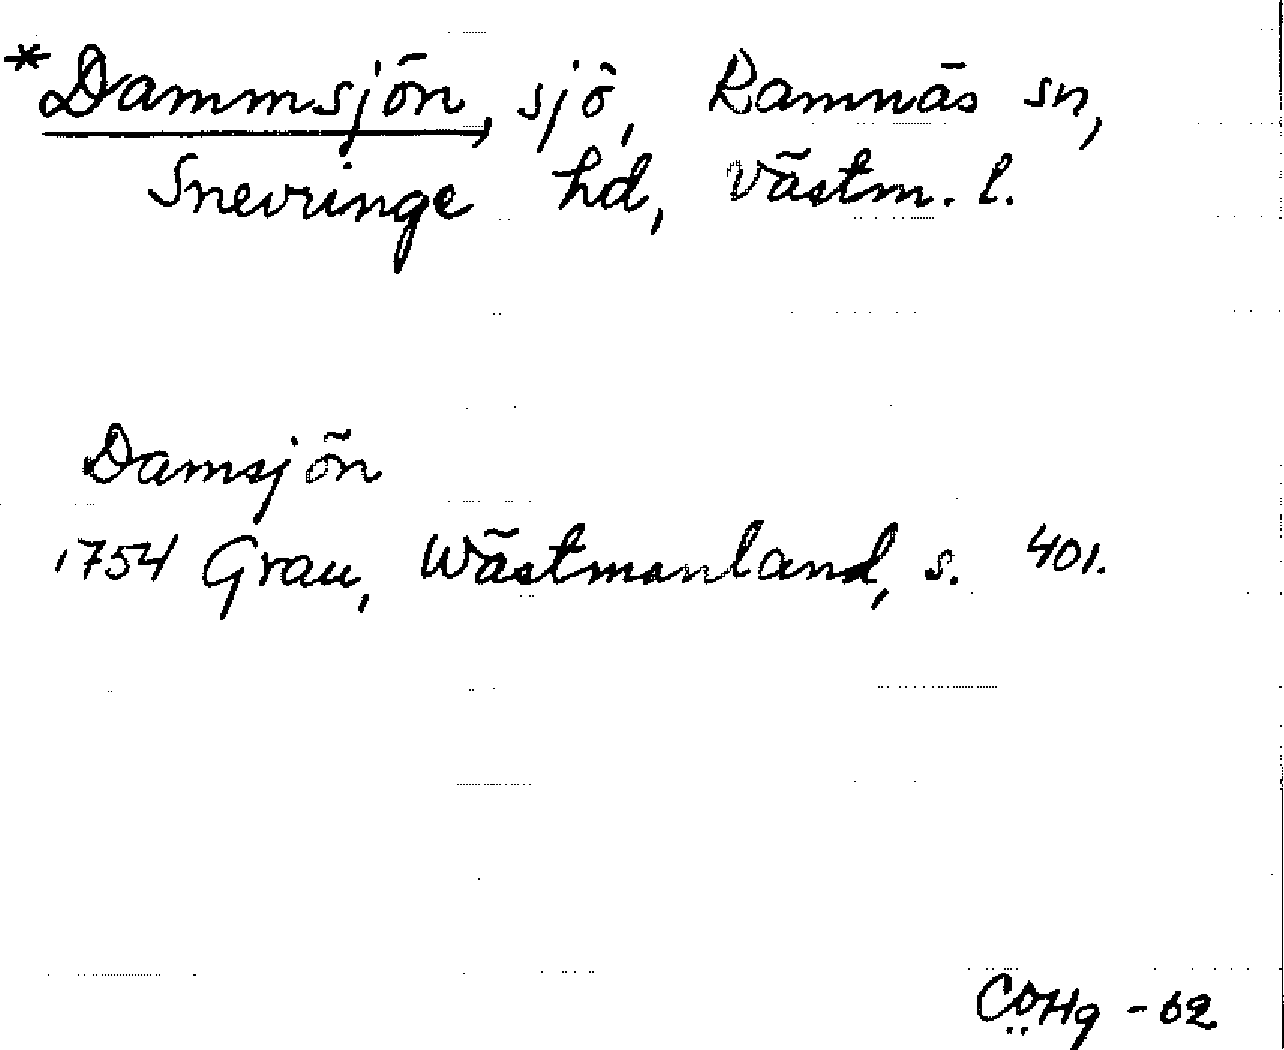 *Dammsjön, sjö, Ramnäs sn,
Snevringe hd, Västm. l.
Damsjön
1754 Grau, Wästmanland, s. 401.
-62